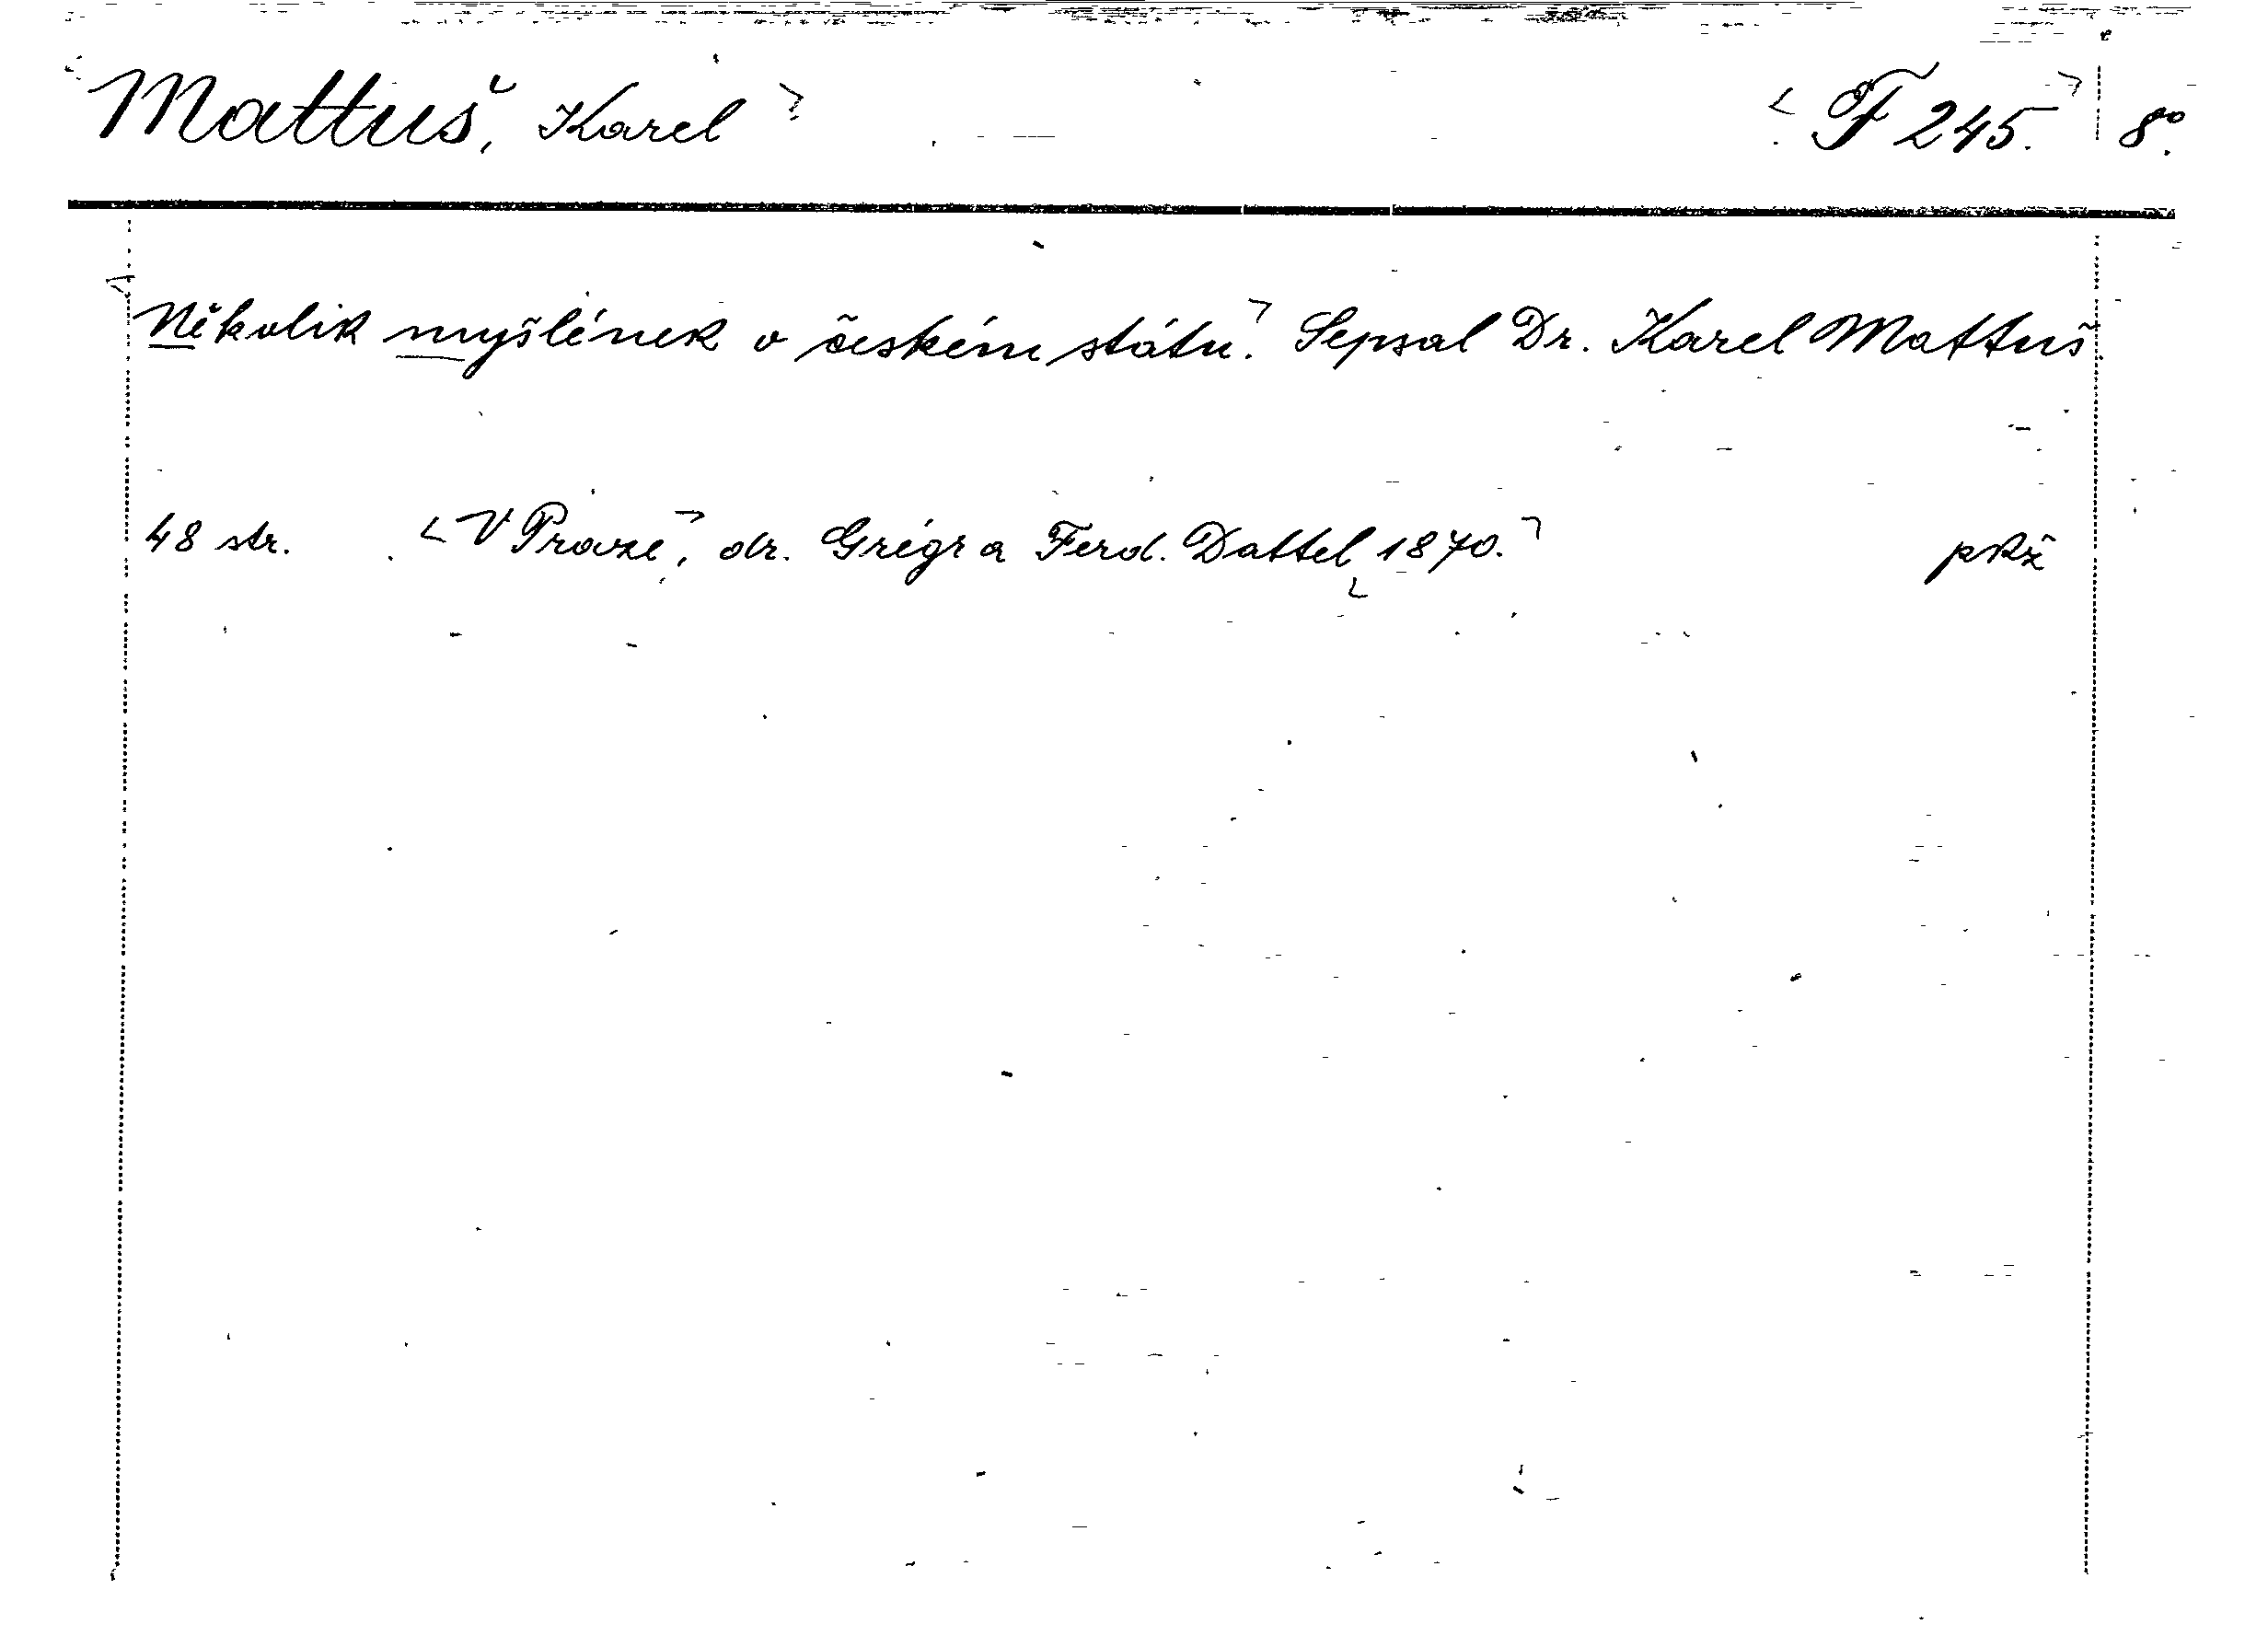 Mattuš, Karel F 245. 8°.
Několik myšlének o českém státu. Sepsal Dr. Karel Mattuš.
48 str. V Praze, dr. Grégr a Ferd. Dattel, 1870. pkž